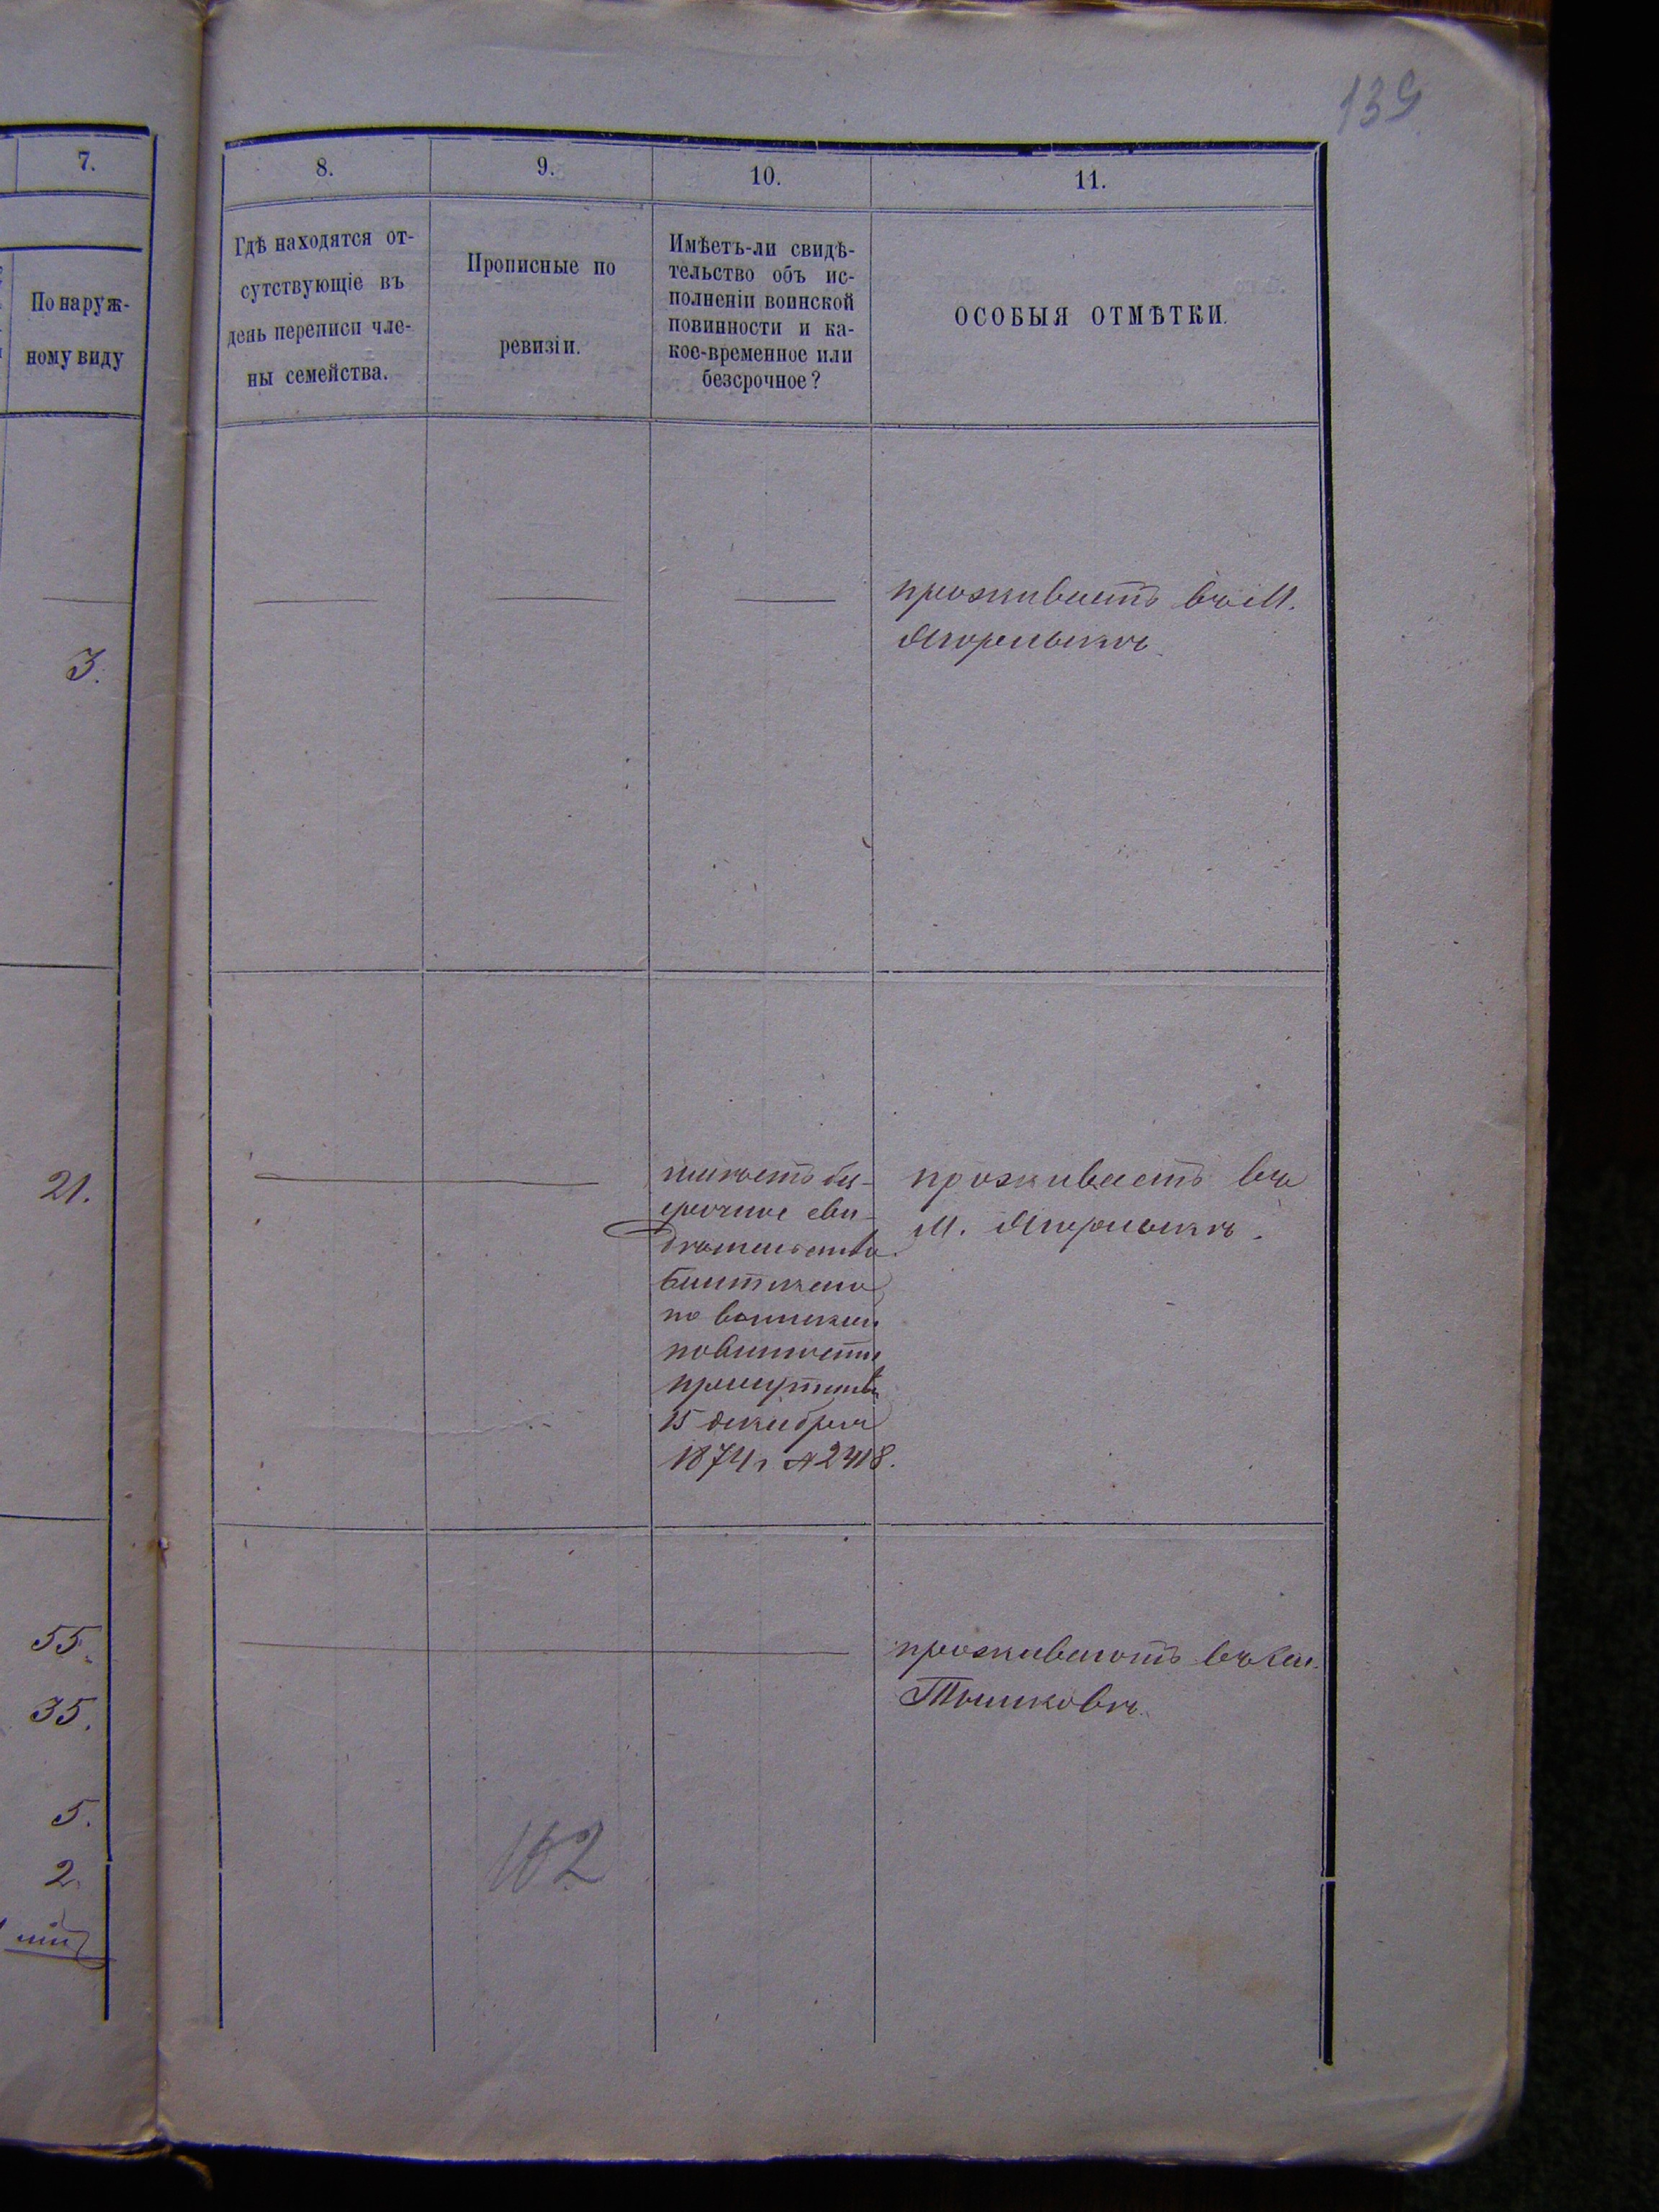 139
7.
По наруж-
ному виду
3.
21.
55.
35.
5.
2.
8.
Гдѣ находятся от-
сутствующіе въ
день переписи чле-
ны семейства.
9.
Прописные по
ревизіи.
10.
Имѣетъ-ли свидѣ-
тельство объ ис-
полненіи воинской
повинности и ка-
кое-временное или
безсрочное?
11.
ОСОБЫЯ ОТМѢТКИ.
проживаетъ въ М.
Ягорлыкѣ.
имѣетъ без-
срочное сви-
дѣтельство
по воинской
повинности
присутствія
15 декабря
1874 г №2418.
проживаетъ въ
М. Ягорлыкѣ.
проживаютъ въ
Тышковкѣ.
162